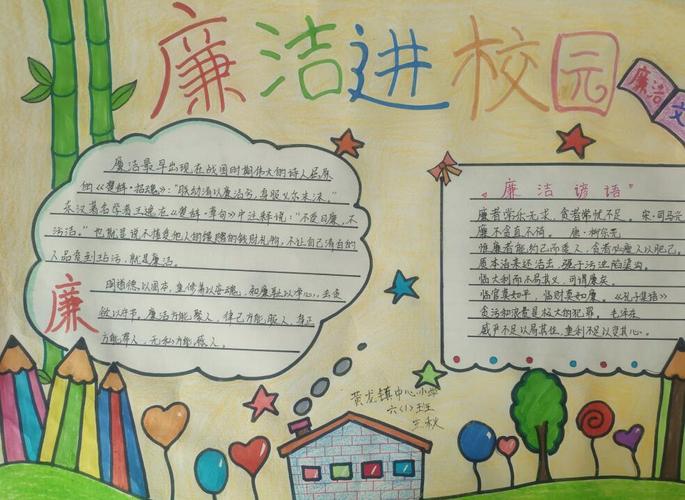 廉洁进校园
廉洁
文
廉洁最早出现在战国时期伟大的诗人屈原
的《楚辞·招魂》:"朕幼清以廉洁兮,身服义尔未沫。"
东汉著名学者王逸在《楚辞·章句》中注释说:"不受曰廉,不
污洁。"也就是说不接受他人的馈赠的钱财礼物,不让自己清白的
人品受到玷污,就是廉洁。
廉
用道德以固本,重修养以安魂,知廉耻以净心,去贪
欲以守节,廉洁方能聚人,律己方能服人,身正
方能带人,无私方能感人。
"廉洁谚语"
廉者常乐无求,贪者常忧不足。宋·司马光
廉不贪直不倚。唐·柳宗元
惟廉者能约己而爱人,贪者必瘠人以肥己。
质本洁来还洁去,强于污淖陷渠沟。
临大利而不易其义,可谓廉矣。
临官莫如平,临财莫如廉。《孔子集语》
贪污和浪费是极大的犯罪。毛泽东
威尹不足以易其位,重利不足以变其心。
黄龙镇中心小学
六(1)班